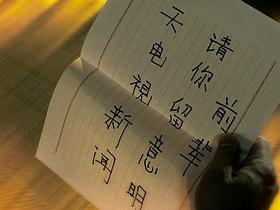 前辈
请你留意明
天电視新闻